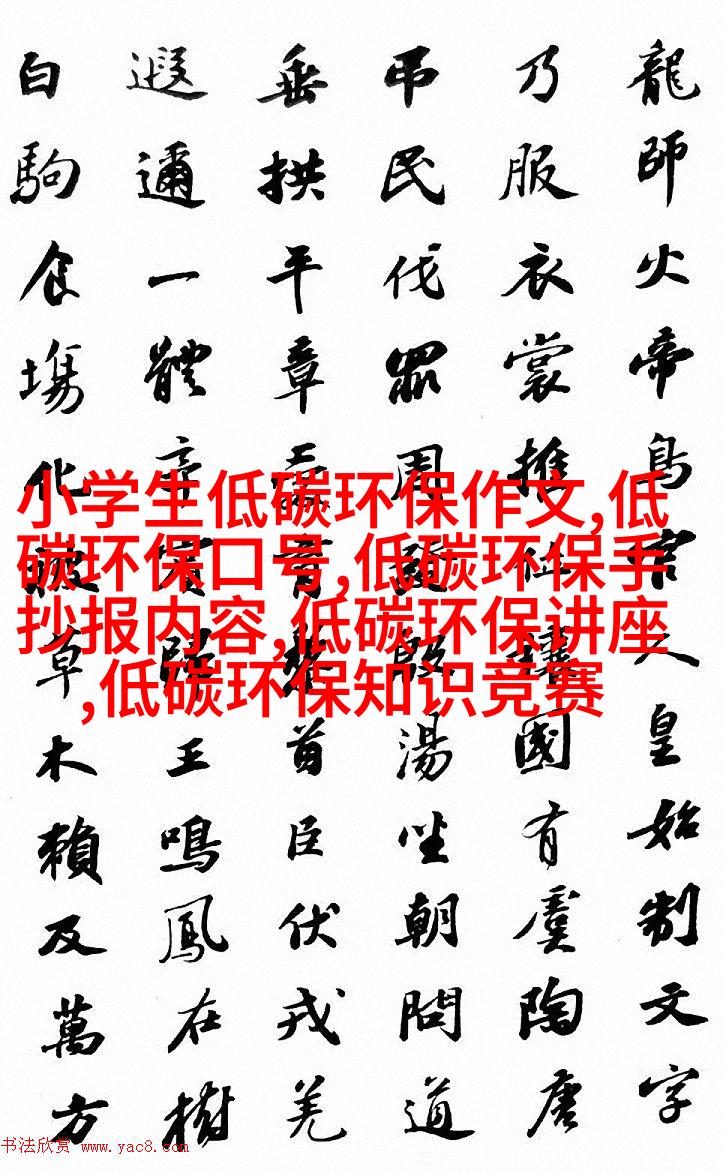 龍師火帝鳥官人皇始制文字
乃服衣裳推位讓國有虞陶唐
吊民伐罪周發殷湯坐朝問道
垂拱平章愛育黎首臣伏戎羌
遐邇一體率賓歸王鳴鳳在樹
白駒食塲化被草木賴及萬方
小学生低碳环保作文,低
碳环保口号,低碳环保手
抄报内容,低碳环保讲座
,低碳环保知识竞赛
书法欣赏 www.yac8.com